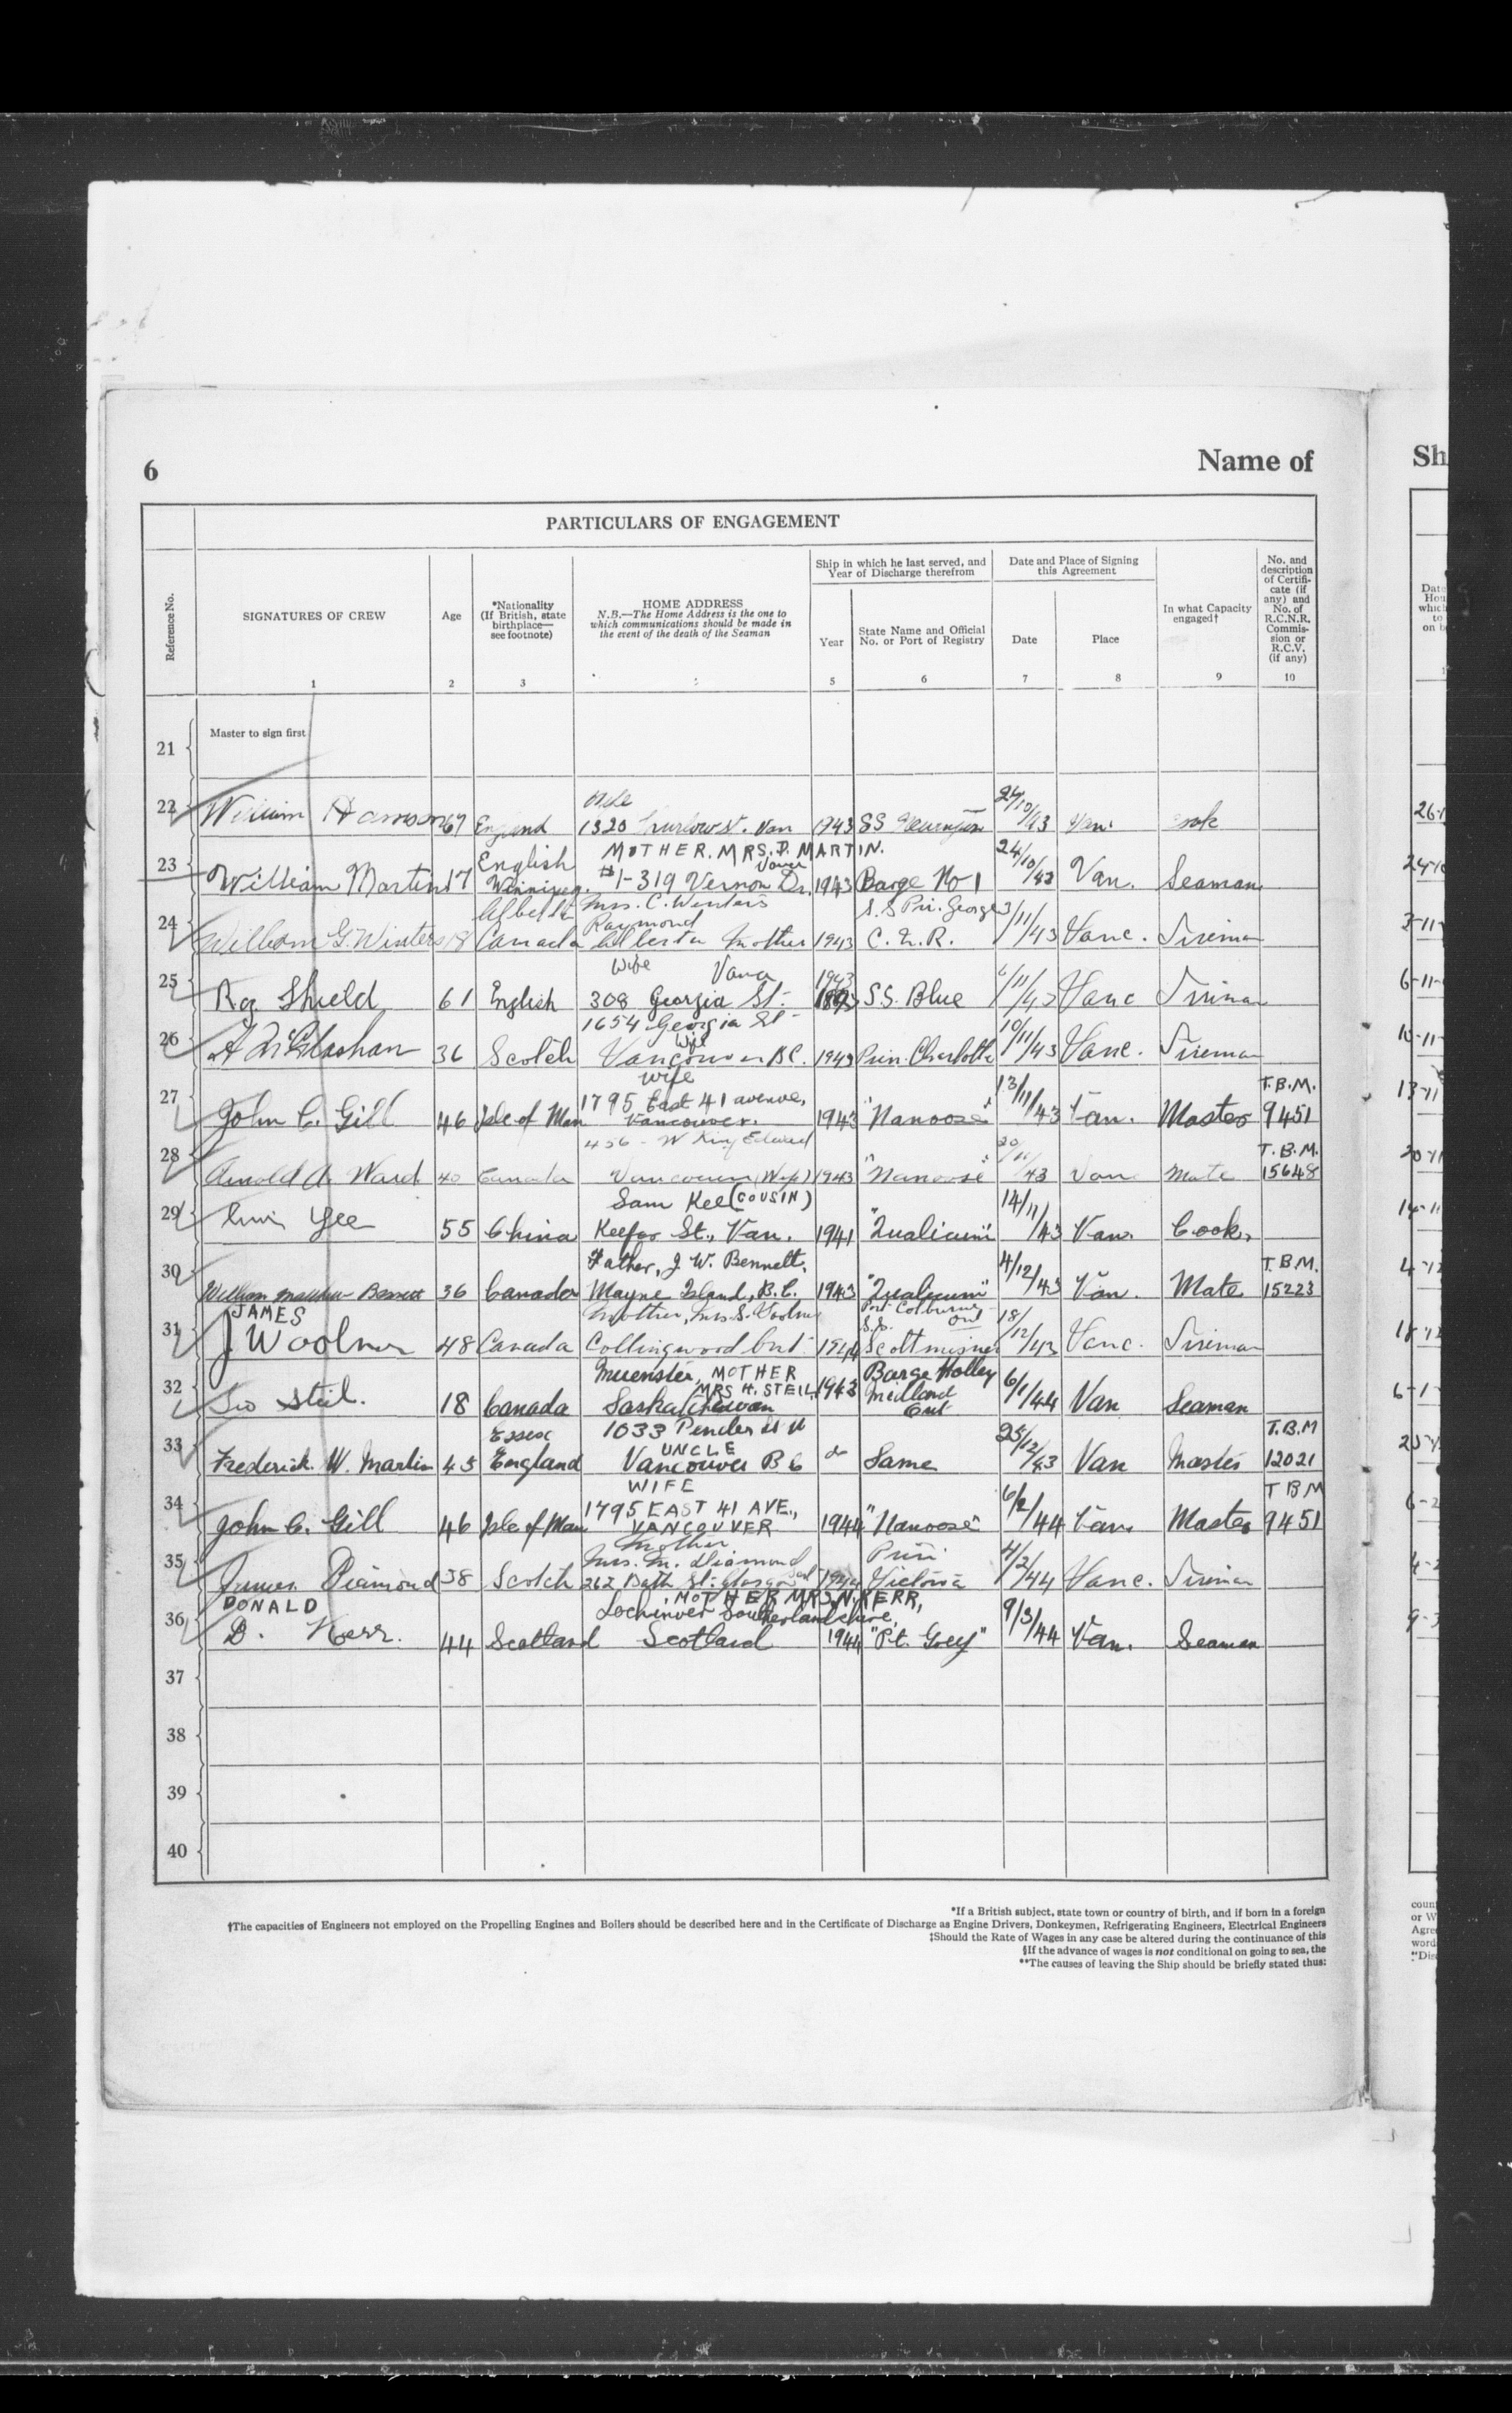 6 Name of Sh
PARTICULARS OF ENGAGEMENT
Reference No.
SIGNATURES OF CREW
1
Age
2
*Nationality
(If British, state
birthplace—
see footnote)
3
HOME ADDRESS
N.B.—The Home Address is the one to
which communications should be made in
the event of the death of the Seaman
Ship in which he last served, and
Year of Discharge therefrom
Year
5
State Name and Official
No. or Port of Registry
6
Date and Place of Signing
this Agreement
Date
7
Place
8
In what Capacity
engaged†
9
No. and
description
of Certifi-
cate (if
any) and
No. of
R.C.N.R.
Commis-
sion or
R.C.V.
(if any)
10
21 Master to sign first
22 William 67 England 1320 St. Van 1943 SS 24/10/43 Van.
MOTHER. MRS. D. MARTIN.
Vanc
23 William Martin 17 English Winnipeg. #1-319 Vernon Dr. 1943 Barge No 1 24/10/43 Van. Seaman
Alberta Mrs. C. Winters S.S Pri. George
Raymond
24 William G. Winters 18 Canada Alberta Mother 1943 C.N.R. 3/11/43 Vanc. Fireman
Wife Vanc 1943
25 Rg Shield 61 English 308 Georgia St. S.S. Blue /11/43 Vanc Fireman
1654 Georgia St
Wife
26 A McGlashan 36 Scotch Vancouver B.C. 1943 Prin. Charlotte 10/11/43 Vanc. Fireman
wife
1795 East 41 avenue, T.B.M.
27 John C. Gill 46 Isle of Man Vancouver. 1943 "Nanoose" 13/11/43 Van. Master 9451
456 - W King Edward T.B.M.
28 Arnold A. Ward 40 Canada Vancouver (Wife) 1943 "Nanoose" 20/11/43 Van Mate 15648
Sam Kee (COUSIN)
29 Yee 55 China Keefer St., Van. 1941 "Qualicum" 14/11/43 Van. Cook.
Father, J. W. Bennett, T.B.M.
30 William Matthew Bennett 36 Canada Mayne Island, B.C. 1943 "Qualicum" 4/12/43 Van. Mate 15223
JAMES Mother, Mrs. S. Woolner Port Colburne Ont
S.S.
31 J Woolner 48 Canada Collingwood Ont. Scott misner 18/12/43 Vanc. Fireman
Muenster, MOTHER Barge Holley
MRS H. STEIL, 1943 Midland
32 Leo Steil. 18 Canada Saskatchewan Ont 6/1/44 Van Seaman
Essex 1033 Pender St W T.B.M
UNCLE
33 Frederick W. Martin 45 England Vancouver B C do Same 25/12/43 Van Master 12021
WIFE T B M
1795 EAST 41 AVE.,
34 John C. Gill 46 Isle of Man VANCOUVER 1944 "Nanoose" 6/2/44 Van. Master 9451
Mother
Mrs. M. Diamond Prin
35 James Diamond 38 Scotch 262 Bath St. Glasgow Scot 1944 Victoria 4/2/44 Vanc. Fireman
DONALD MOTHER MRS. N. KERR,
Lochinver Southerlandshire
36 D. Kerr. 44 Scotland Scotland 1944 "Pt. Grey" 9/3/44 Van. Seaman
37
38
39
40
*If a British subject, state town or country of birth, and if born in a foreign
†The capacities of Engineers not employed on the Propelling Engines and Boilers should be described here and in the Certificate of Discharge as Engine Drivers, Donkeymen, Refrigerating Engineers, Electrical Engineers
‡Should the Rate of Wages in any case be altered during the continuance of this
§If the advance of wages is not conditional on going to sea, the
**The causes of leaving the Ship should be briefly stated thus: